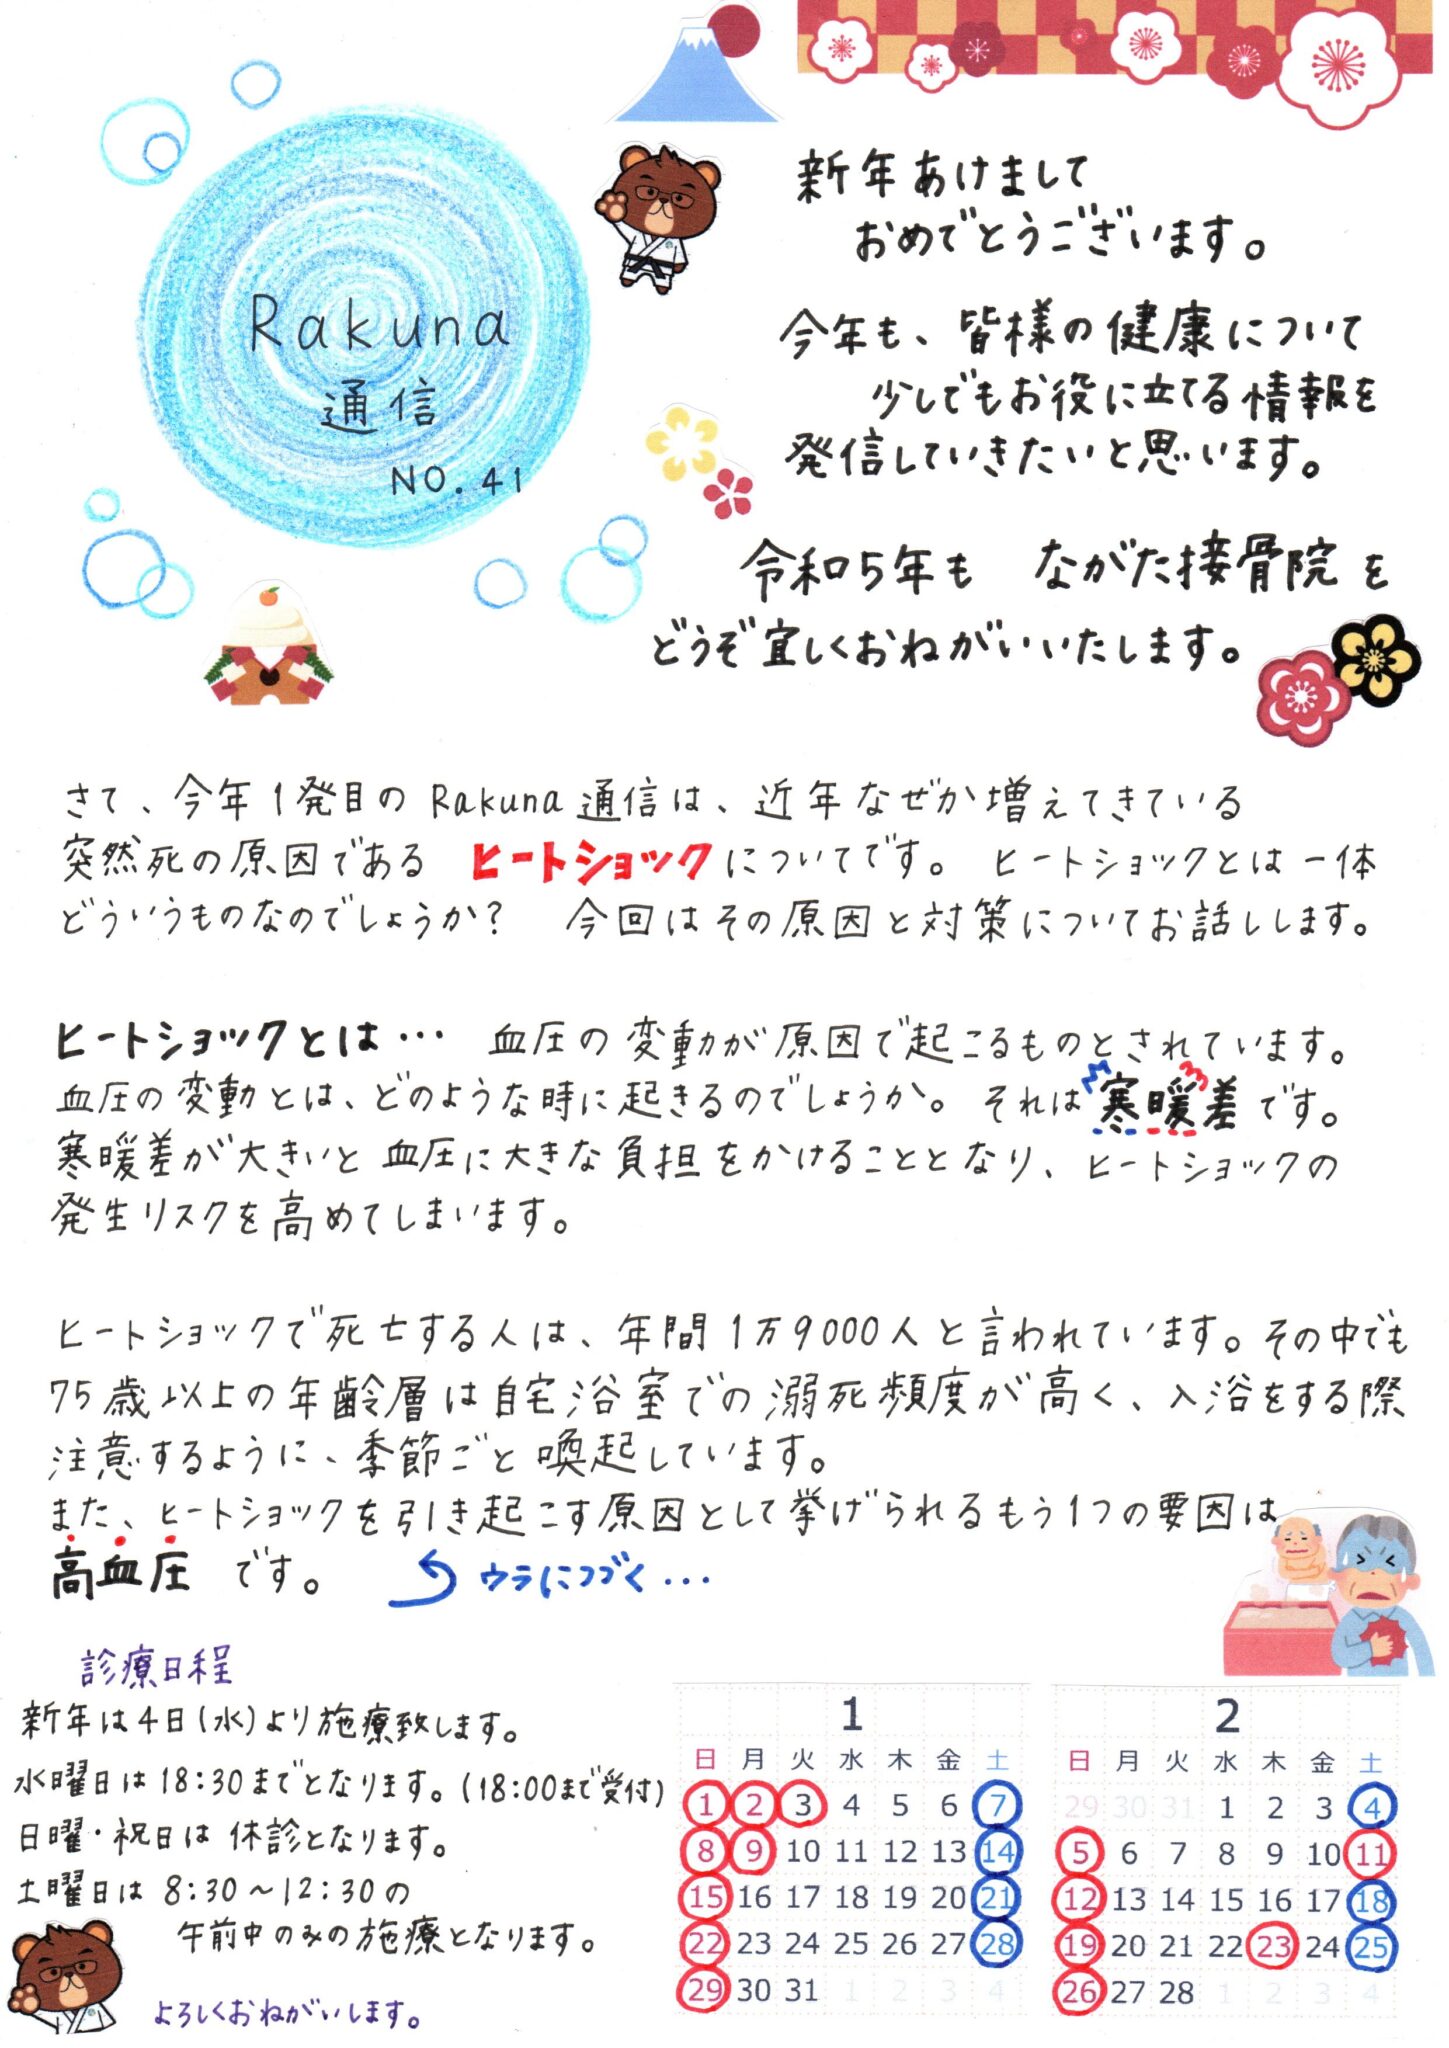 Rakuna
通信
NO. 41
新年あけまして
おめでとうございます。
今年も、皆様の健康について
少しでもお役に立てる情報を
発信していきたいと思います。
令和5年も ながた接骨院を
どうぞ宜しくおねがいいたします。
さて、今年1発目のRakuna通信は、近年なぜか増えてきている
突然死の原因である ヒートショックについてです。 ヒートショックとは一体
どういうものなのでしょうか? 今回はその原因と対策についてお話しします。
ヒートショックとは… 血圧の変動が原因で起こるものとされています。
血圧の変動とは、どのような時に起きるのでしょうか。それは寒暖差です。
寒暖差が大きいと血圧に大きな負担をかけることとなり、ヒートショックの
発生リスクを高めてしまいます。
ヒートショックで死亡する人は、年間1万9000人と言われています。その中でも
75歳以上の年齢層は自宅浴室での溺死頻度が高く、入浴をする際
注意するように、季節ごと喚起しています。
また、ヒートショックを引き起こす原因として挙げられるもう1つの要因は
高血圧 です。 ウラにつづく…
診療日程
新年は4日(水)より施療致します。
水曜日は18:30までとなります。(18:00まで受付)
日曜・祝日は 休診となります。
土曜日は 8:30～12:30の
午前中のみの施療となります。
よろしくおねがいします。
1
日 月 火 水 木 金 土
1 2 3 4 5 6 7
8 9 10 11 12 13 14
15 16 17 18 19 20 21
22 23 24 25 26 27 28
29 30 31 1 2 3 4
2
日 月 火 水 木 金 土
29 30 31 1 2 3 4
5 6 7 8 9 10 11
12 13 14 15 16 17 18
19 20 21 22 23 24 25
26 27 28 1 2 3 4